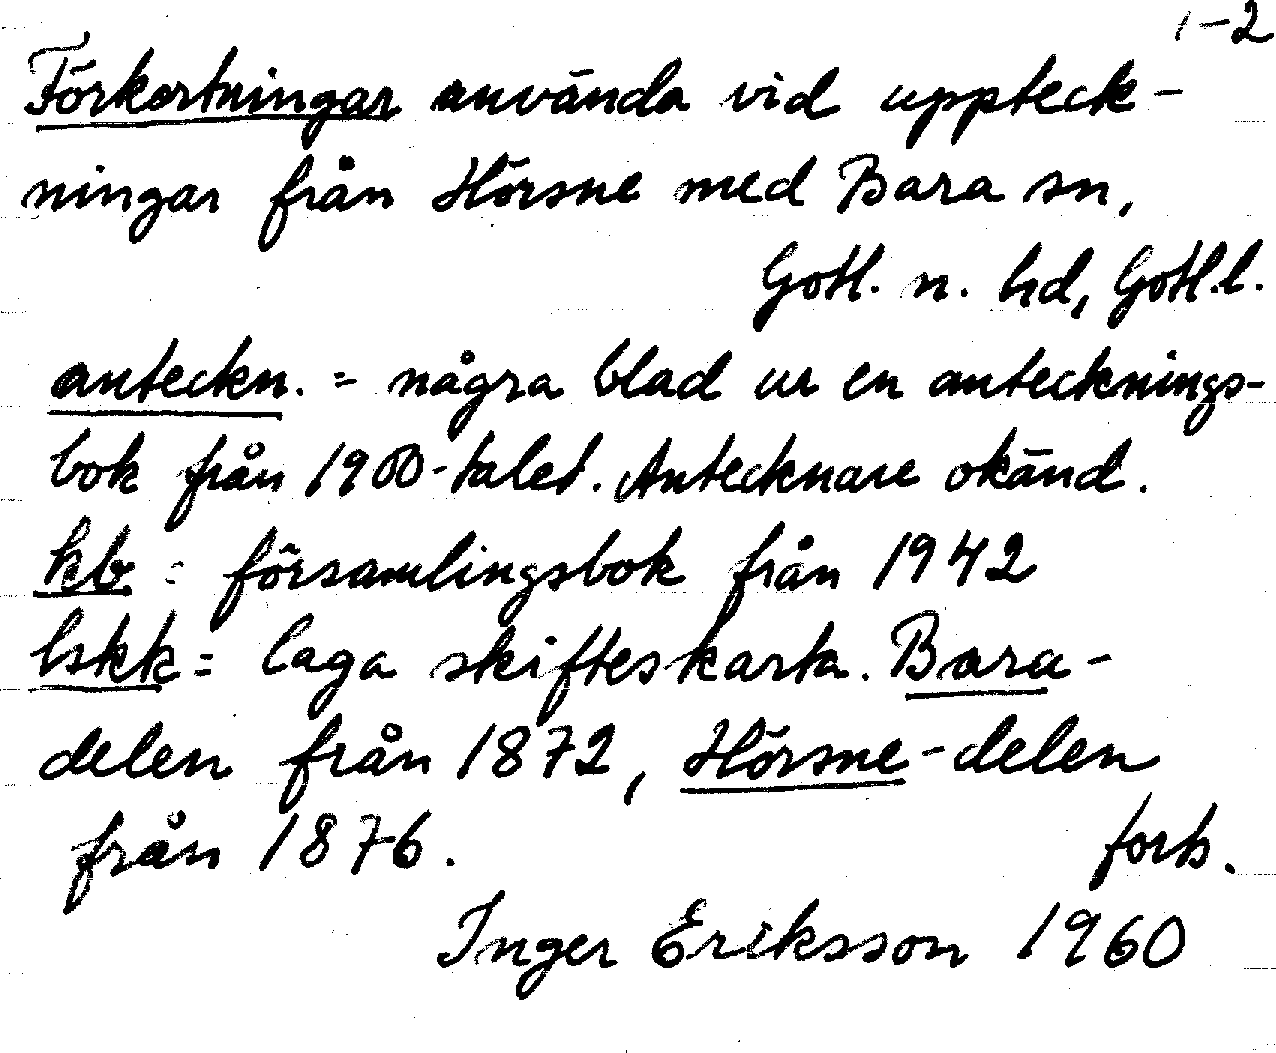 1-2
Förkortningar använda vid uppteck-
ningar från Hörsne med Bara sn,
Gotl. n. hd, Gotl.l.
anteckn. = några blad ur en antecknings-
bok från 1900-talet. Antecknare okänd.
kb = församlingsbok från 1942
lskk = laga skifteskarta. Bara-
delen från 1872, Hörsne-delen
från 1876. forts.
Inger Eriksson 1960